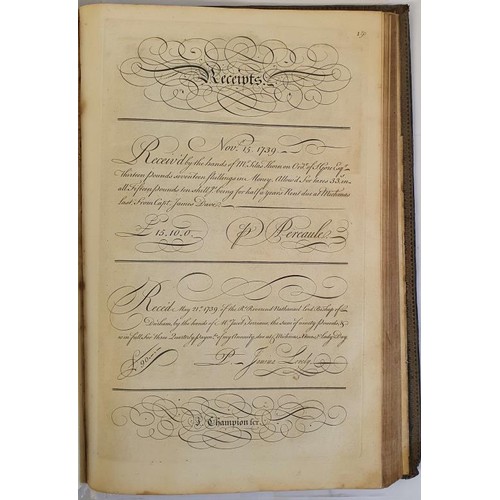 Receipts.
Nov.r 15. 1739.
Receiv'd by the hands of M.r Silas Horn on Ord.r of S Gore Esq.r
Thirteen pounds seventeen shillings in Money, Allow'd for taxes 33.s in
all Fifteen pounds ten shill.s being for half a Year's Rent due at Mich'mas
last. From Capt. James Dave
£ 15.10.0. p Percaule
Receiv'd May 21.st 1739 of the R.t Reverend Nathaniel Lord Bishop of
Durham, by the hands of M.r the sum of ninety Pounds, &
is in full for three Quarterly Paym.ts of my Annuity, due at Mich'mas, & Lady Day
£90 P James Lindy
J. Champion scr.